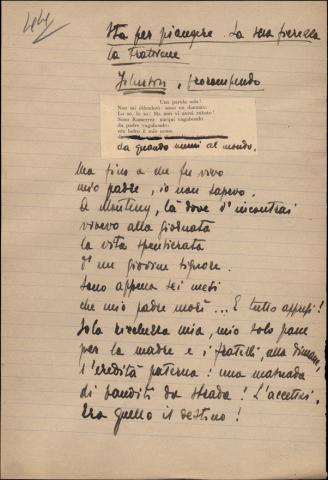 Sta per piangere. La sua fierezza
la trattiene
Johnson, prorompendo
Una parola sola!
Non mi difenderò: sono un dannato.
Lo so, lo so: Ma non vi avrei rubato!
Sono Ramerrez: nacqui vagabondo
da padre vagabondo:
era ladro il mio nome
da quando venni al mondo.
Ma fino a che fu vivo
mio padre, io non sapevo.
A Monterey, là dove v'incontrai
vivevo alla giornata
la vita spensierata
d'un giovine signore.
Sono appena sei mesi
che mio padre morì ... E tutto appresi!
Sola ricchezza mia, mio solo pane
per la madre e i fratelli, alla dimane,
l'eredità paterna: una masnada
di banditi da strada! L'accettai.
Era quello il destino!